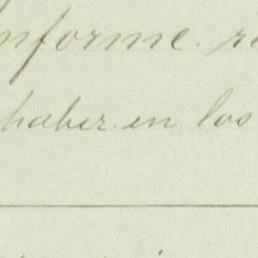 informe. re
haber en los